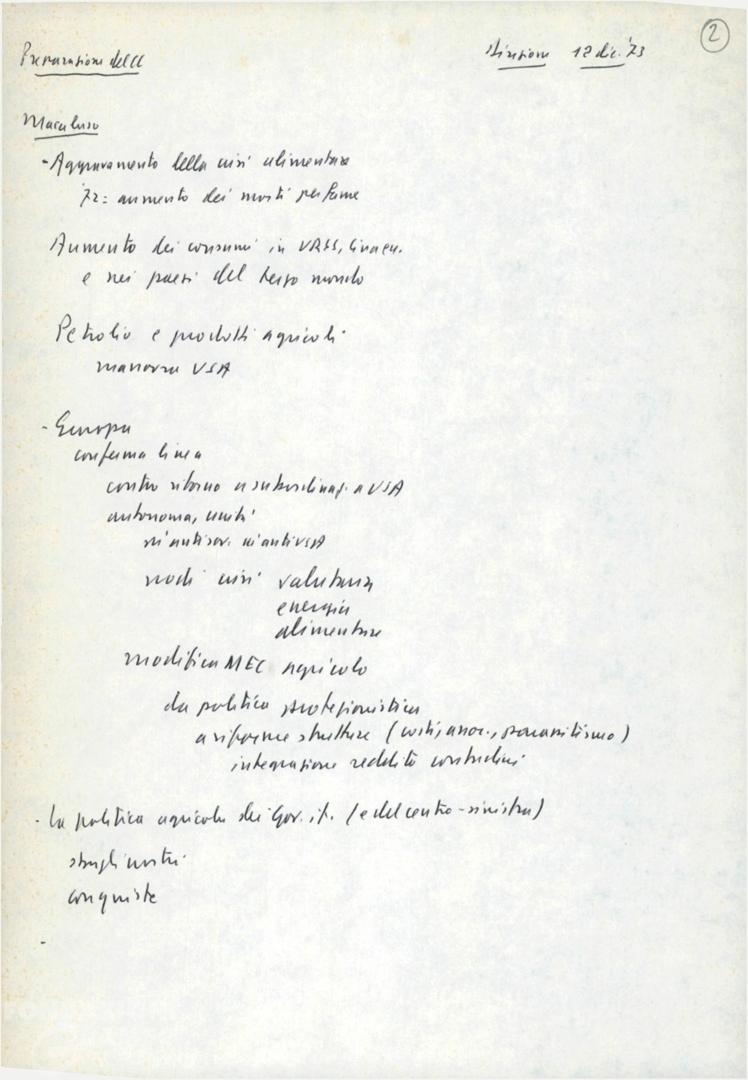 Preparazione del CC
Direzione 12 dic. '73
2
Macaluso
- Aggravamento della crisi alimentare
'72: aumento dei morti per fame
Aumento dei consumi in URSS, Cina ecc.
e nei paesi del terzo mondo
Petrolio e prodotti agricoli
manovra USA
- Europa
conferma linea
contro ritorno a subordinaz. a USA
autonoma, unità
né antisov. né antiUSA
nodi crisi valutaria
energia
alimentare
modifica MEC agricolo
da politica protezionistica
a riforme strutture (costi, assoc., parassitismo)
integrazione reddito contadini
- La politica agricola dei Gov. it. (e del centro-sinistra)
sbagli nostri
conquiste
-